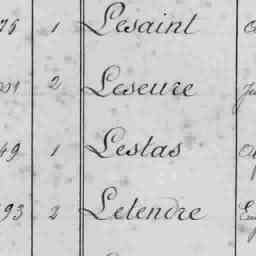 75 1 Lesaint
2 Leseure
49 1 Lestas
93 2 Letendre